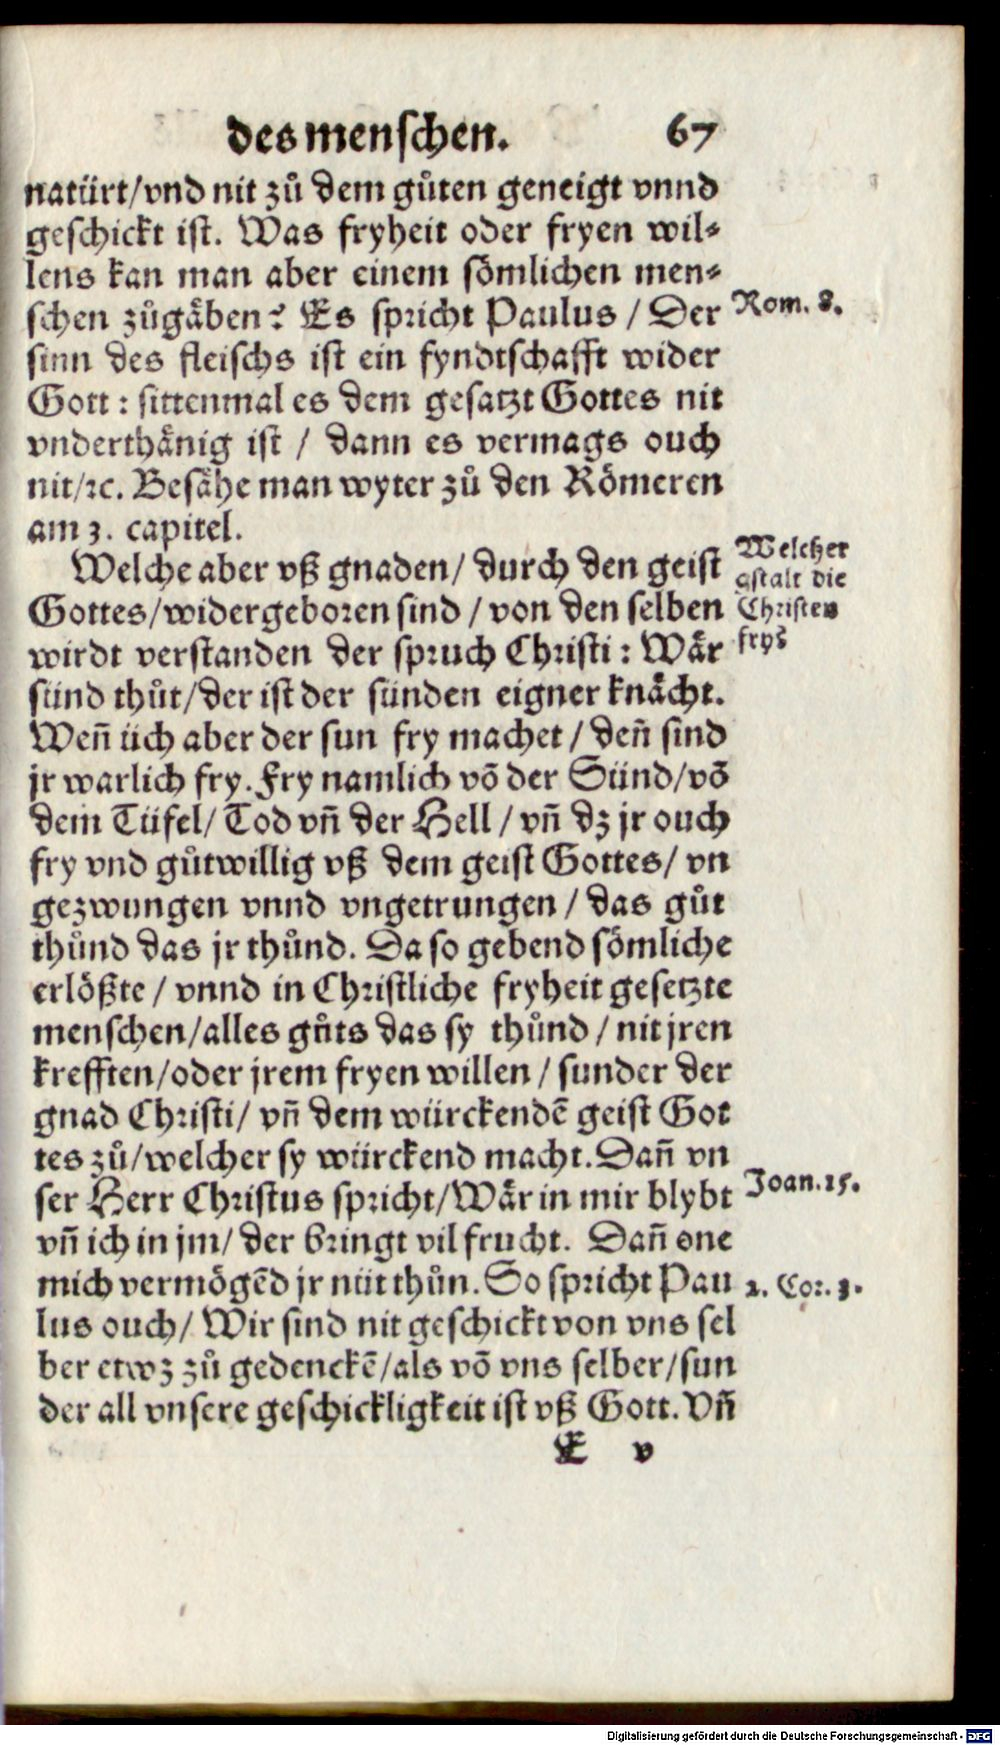 des menschen. 67
natürt/vnd nit zů dem gůten geneigt vnnd
geschickt ist. Was fryheit oder fryen wil⸗
lens kan man aber einem sömlichen men⸗
schen zůgäben? Es spricht Paulus / Der
Rom. 8.
sinn des fleischs ist ein fyndtschafft wider
Gott : sittenmal es dem gesatzt Gottes nit
vnderthänig ist / dann es vermags ouch
nit/ꝛc. Besähe man wyter zů den Römeren
am 3. capitel.
Welche aber vß gnaden/ durch den geist
Welcher
gstalt die
Christen
fry?
Gottes/widergeboren sind / von den selben
wirdt verstanden der spruch Christi : Wär
sünd thůt/der ist der sünden eigner knächt.
Weñ üch aber der sun fry machet / deñ sind
jr warlich fry. Fry namlich võ der Sünd/võ
dem Tüfel/ Tod vñ der Hell / vñ dz jr ouch
fry vnd gůtwillig vß dem geist Gottes/ vn
gezwungen vnnd vngetrungen / das gůt
thůnd das jr thůnd. Da so gebend sömliche
erlößte / vnnd in Christliche fryheit gesetzte
menschen/alles gůts das sy thůnd / nit jren
krefften/oder jrem fryen willen / sunder der
gnad Christi/ vñ dem würckendẽ geist Got
tes zů/welcher sy würckend macht. Dañ vn
ser Herr Christus spricht/Wär in mir blybt
Joan. 15.
vñ ich in jm/ der bringt vil frucht. Dañ one
mich vermögẽd jr nüt thůn. So spricht Pau
2. Cor. 3.
lus ouch/ Wir sind nit geschickt von vns sel
ber etwz zů gedenckẽ/als võ vns selber/sun
der all vnsere geschickligkeit ist vß Gott. Vñ
E v
Digitalisierung gefördert durch die Deutsche Forschungsgemeinschaft - DFG